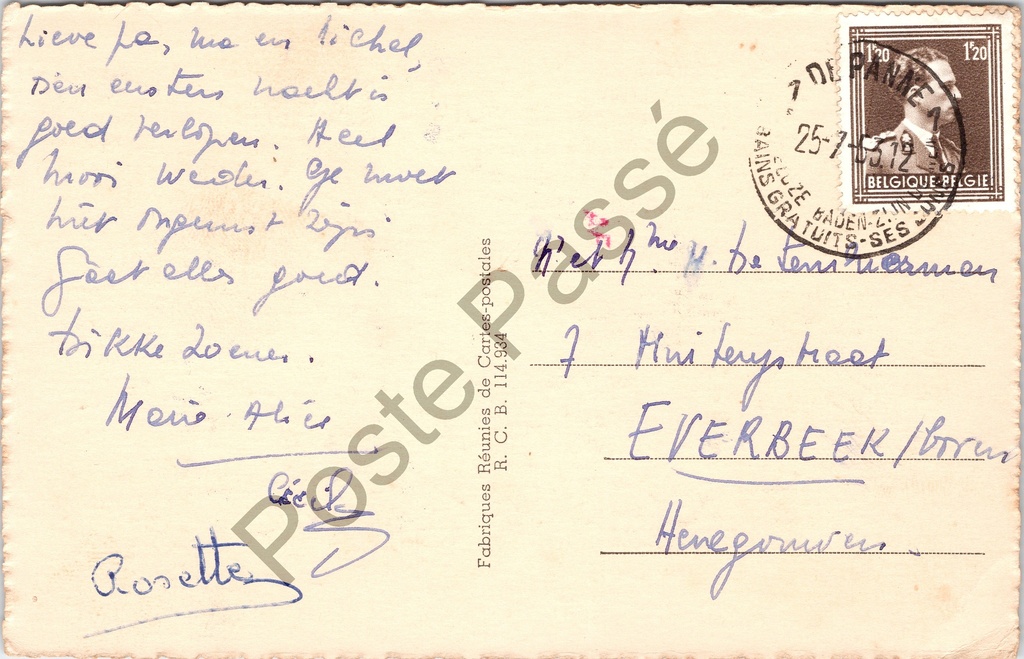 Lieve pa, ma en Michel,
Den eersten nacht is
goed verlopen. Heel
mooi weder. Ge moet
niet ongerust zijn
Gaat alles goed.
Dikke zoenen.
Marie-Alice
Cécile
Rosette
Fabriques Réunies de Cartes-postales
R. C. B. 114.934
1'20 1'20
BELGIQUE-BELGIE
1 DE PANNE 1
25-7-53.12
BADEN-ZIJN
BAINS GRATUITS-SES
Mr et Mme H. De Temmerman
7
EVERBEEK/boven
Henegouwen.
Poste Passé